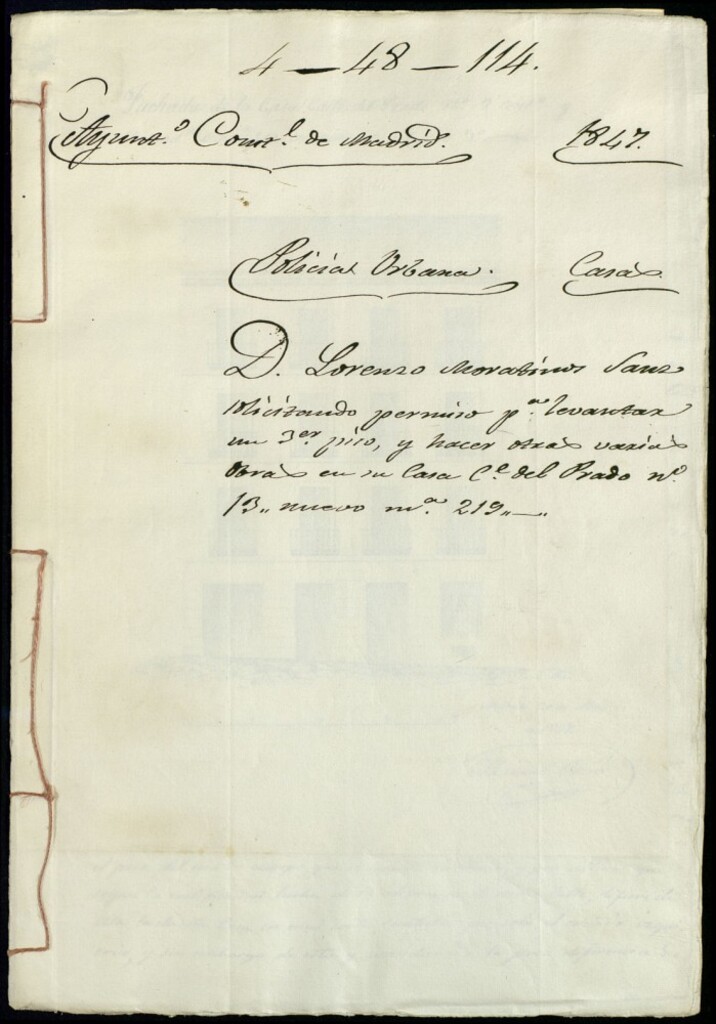 4 - 48 - 114.
Ayunt.º Const.l de Madrid. 1847.
Policía Urbana. Casas
D. Lorenzo Moratinos Sanz
solicitando permiso p.ª levantar
un 3.er piso, y hacer otras varias
obras en su Casa C.e del Prado n.º
13,, nuevo m.ª 219,,—.